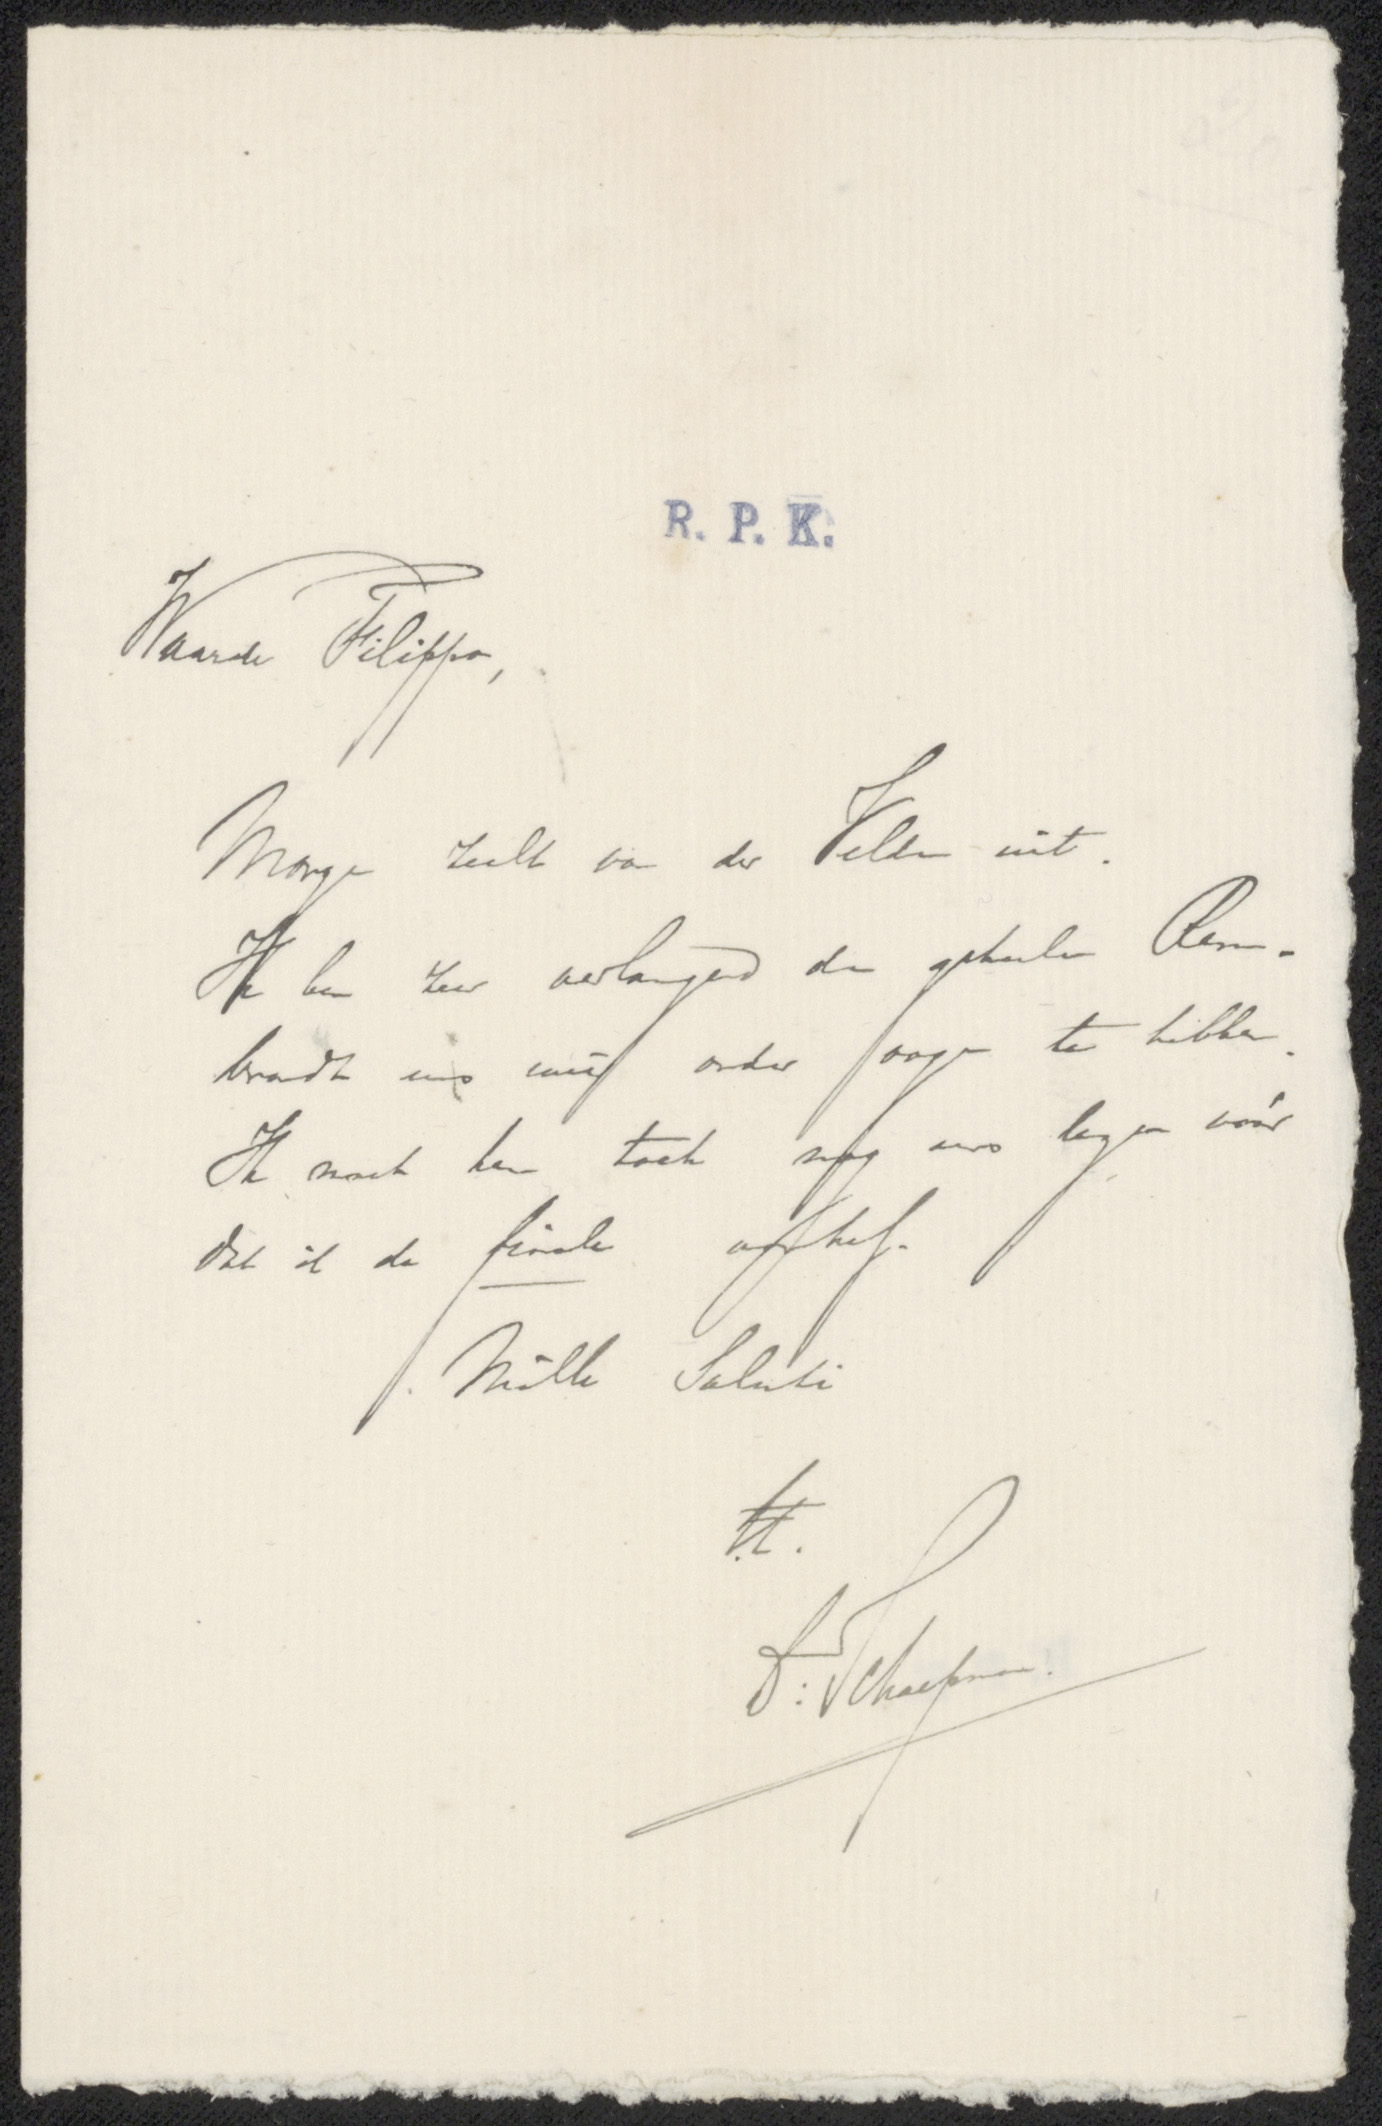 R. P. K.
Waarde Filippo,
Morgen zeilt van der Velden uit.
Ik ben zeer verlangend den geheelen Rem-
brandt eens onder oogen te hebben.
Ik moet hem toch nog eens lezen vóór
dat ik de finale afschaf.
Mille Saluti
tt.
Dr: Schaepman.